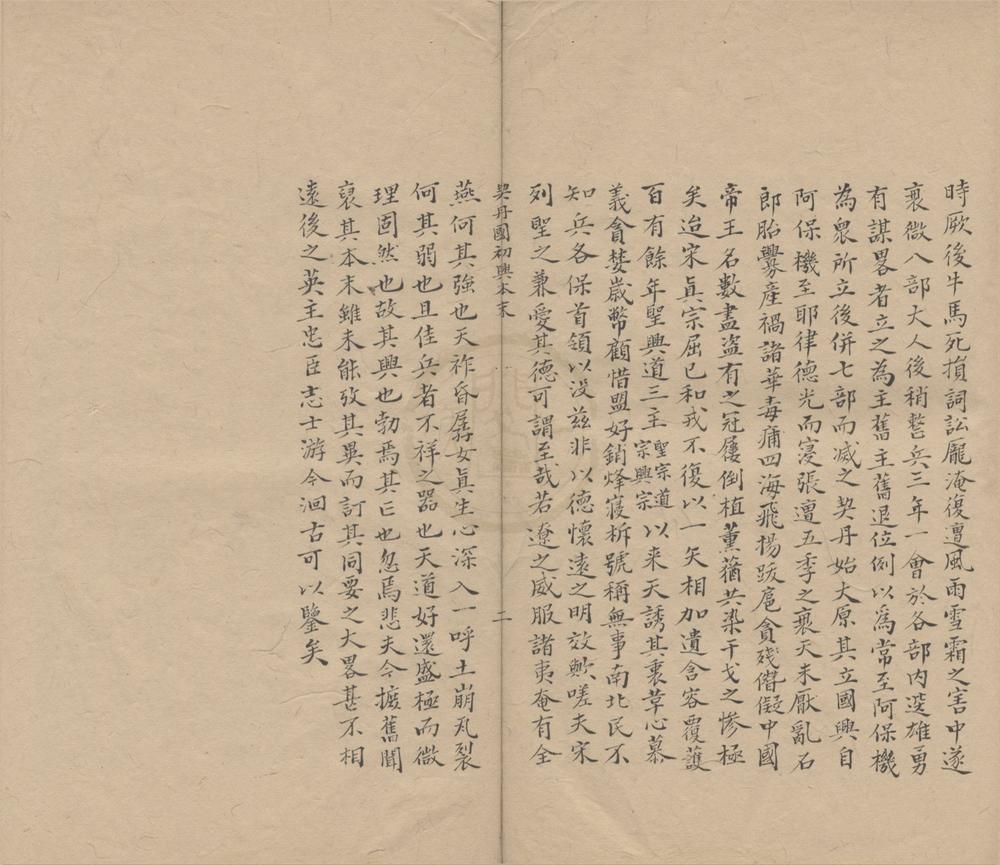 時厥後牛馬死損詞訟龎淹復遭風雨雪霜之害中遂
衰微八部大人後稍整兵三年一會於各部内選雄勇
有謀畧者立之為主舊主舊退位例以爲常至阿保機
為衆所立後併七部而滅之契丹始大原其立國興自
阿保機至耶律德光而寖張遭五季之衰天未厭亂石
郎胎釁產禍諸華毒痡四海飛揚跋扈貪殘僭儗中國
帝王名數盡盜有之冠屨倒植薰蕕共染干戈之慘極
矣迨宋眞宗屈已和戎不復以一矢相加遺含容覆護
百有餘年聖興道三主聖宗道宗興宗以来天誘其衷革心慕
義貪婪歲幣顧惜盟好銷烽寢柝號稱無事南北民不
知兵各保首領以没兹非以德懷遠之明效歟嗟夫宋
列聖之兼愛其德可謂至哉若遼之威服諸夷奄有全
契丹國初興本末
二
燕何其強也天祚昏孱女眞生心深入一呼土崩瓦裂
何其弱也且佳兵者不祥之器也天道好還盛極而微
理固然也故其興也勃焉其亡也忽焉悲夫今摭舊聞
裒其本末雖未能攷其異而訂其同要之大畧甚不相
遠後之英主忠臣志士游今洄古可以鑒矣